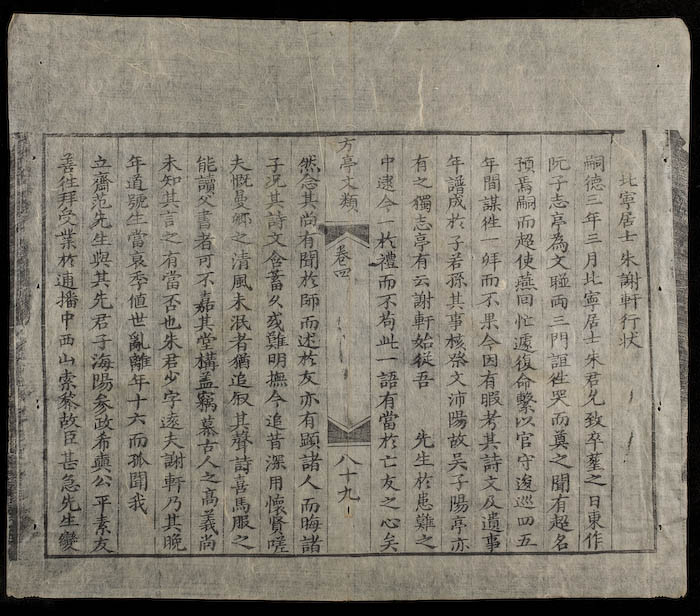 北寧居士朱謝軒行狀
嗣德三年三月北寧居士朱君允致卒塟之日東作
阮子志亭為文暨両三門誼徃哭而奠之聞有超名
預焉嗣而超使燕回忙遽復命繫以官守逡巡四五
年間謀徃一拜而不果今因有暇考其詩文及遺事
年譜成於子若孫其事核祭文沛陽故吳子陽亭亦
有之獨志亭有云謝軒始從吾 先生於患難之
中逮今一於禮而不苟此一語有當於亡友之心矣
方亭文類 卷四 八十九
然念其尚有聞於師而述於友亦有顕諸人而晦諸
子況其詩文含蓄久或難明撫今追昔深用懷賢嗟
夫慨曼卿之清風未泯者猶追叙其聲詩喜馬服之
能讀父書者可不嘉其堂構盖竊慕古人之高義尚
未知其言之有當否也朱君少字逺夫謝軒乃其晚
年道號生當衰季値世亂離年十六而孤聞我
立齋范先生與其先君子海陽參政希奭公平素友
善徃拜受業於逋播中西山索黎故臣甚急先生變